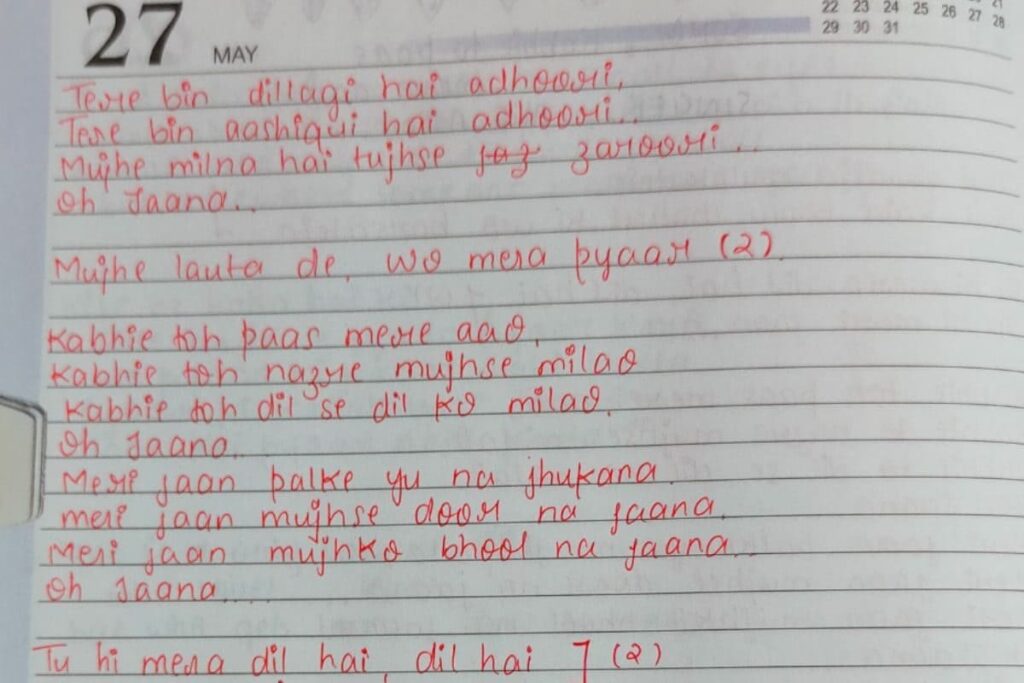 27 MAY
22 23 24 25 26 27 28
29 30 31
Tere bin dillagi hai adhoori,
Tere bin aashiqui hai adhoori..
Mujhe milna hai tujhse zaroori...
Oh Jaana..
Mujhe lauta de, wo mera pyaar (2)
Kabhie toh paas mere aao,
Kabhie toh nazre mujhse milao
Kabhie toh dil se dil ko milao,
Oh Jaana..
Meri jaan palke yu na jhukana
Meri jaan mujhse door na jaana.
Meri jaan mujhko bhool na jaana..
Oh Jaana....
Tu hi mera dil hai, dil hai ] (2)